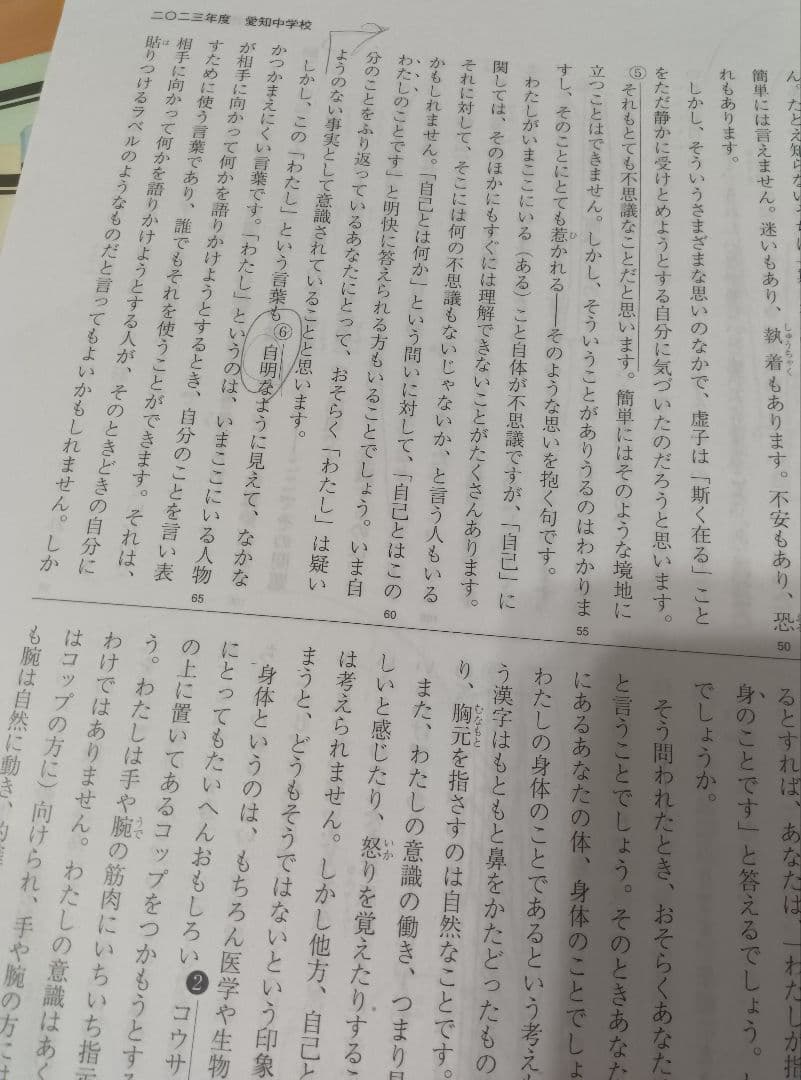 二〇二三年度 愛知中学校
簡単には言えません。迷いもあり、執着もあります。不安もあり、恐
しゅうちゃく
れもあります。
50
しかし、そういうさまざまな思いのなかで、虚子は「斯く在る」こと
をただ静かに受けとめようとする自分に気づいたのだろうと思います。
⑤それもとても不思議なことだと思います。簡単にはそのような境地に
立つことはできません。しかし、そういうことがありうるのはわかりま
55
すし、そのことにとても惹かれる――そのような思いを抱く句です。
ひ
わたしがいまここにいる(ある)こと自体が不思議ですが、「自己」に
関しては、そのほかにもすぐには理解できないことがたくさんあります。
それに対して、そこには何の不思議もないじゃないか、と言う人もいる
かもしれません。「自己とは何か」という問いに対して、「自己とはこの
わたしのことです」と明快に答えられる方もいることでしょう。いま自
60
分のことをふり返っているあなたにとって、おそらく「わたし」は疑い
ようのない事実として意識されていることと思います。
しかし、この「わたし」という言葉も⑥自明なように見えて、なかな
かつかまえにくい言葉です。「わたし」というのは、いまここにいる人物
が相手に向かって何かを語りかけようとするとき、自分のことを言い表
65
すために使う言葉であり、誰でもそれを使うことができます。それは、
相手に向かって何かを語りかけようとする人が、そのときどきの自分に
貼りつけるラベルのようなものだと言ってもよいかもしれません。しか
は
るとすれば、あなたは、「わたしが指
身のことです」と答えるでしょう。
でしょうか。
そう問われたとき、おそらくあなた
と言うことでしょう。そのときあなた
にあるあなたの体、身体のことでしょ
わたしの身体のことであるという考え
う漢字はもともと鼻をかたどったもの
り、胸元を指さすのは自然なことです。
むなもと
また、わたしの意識の働き、つまり
しいと感じたり、怒りを覚えたりするこ
いか
は考えられません。しかし他方、自己と
まうと、どうもそうではないという印象
身体というのは、もちろん医学や生物
にとってもたいへんおもしろい❷コウサ
の上に置いてあるコップをつかもうとする
う。わたしは手や腕の筋肉にいちいち指示
うで
わけではありません。わたしの意識はあく
はコップの方に)向けられ、手や腕の方には
も腕は自然に動き、